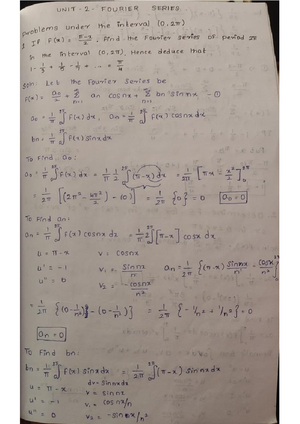 UNIT-2- FOURIER SERIES
Problems under the interval (0,2π)
1 If f(x) = π-x/2, find the Fourier series of period 2π
in the interval (0,2π). Hence deduce that
1 - 1/3 + 1/5 - 1/7 + ... = π/4
Soln: Let the Fourier Series be
f(x) = a₀/2 + ∑ₙ₌₁^∞ an cosnx + ∑ₙ₌₁^∞ bn sinnx - ①
a₀ = 1/π ∫₀^2π f(x) dx, an = 1/π ∫₀^2π f(x) cosnx dx
bn = 1/π ∫₀^2π f(x) sinnx dx
To Find a₀:
a₀ = 1/π ∫₀^2π f(x) dx = 1/π 1/2 ∫₀^2π (π-x) dx = 1/2π [πx - x²/2]₀^2π
= 1/2π [(2π² - 4π²/2) - (0)] = 1/2π {0} = 0 a₀=0
To Find an:
an = 1/π ∫₀^2π f(x) cosnx dx = 1/π 1/2 ∫₀^2π [π-x] cosx dx
u = π-x v = cosnx
u' = -1 v₁ = sinnx/n an = 1/2π {(π-x) sinnx/n - cosnx/n²
u'' = 0 v₂ = -cosnx/n²
= 1/2π {(0-1/n²) - (0-1/n²)} = 1/2π {-1/n² + 1/n²} = 0
an = 0
To Find bn:
bn = 1/π ∫₀^2π f(x) sinnx dx = 1/2π ∫₀^2π (π-x) sinnx dx
u = π-x dv = sinnx dx
u' = -1 v₁ = cosnx/n
u'' = 0 v₂ = -sinnx/n²